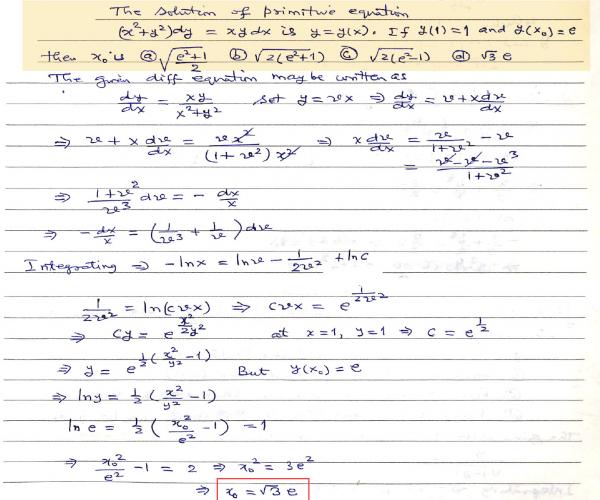 The solution of primitive equation
(x²+y²)dy = xy dx is y=y(x). If y(1)=1 and y(x₀)=e
then x₀ is ⓐ √((e²+1)/2) ⓑ √2(e²+1) ⓒ √2(e²-1) ⓓ √3 e
The given diff equation may be written as
dy/dx = xy/(x²+y²) Set y=vx ⇒ dy/dx = v+x dv/dx
⇒ v + x dv/dx = vx²/((1+v²)x²) ⇒ x dv/dx = v/(1+v²) - v
= (v-v-v³)/(1+v²)
⇒ (1+v²)/v³ dv = - dx/x
⇒ -dx/x = (1/v³ + 1/v) dv
Integrating ⇒ -lnx = lnv - 1/2v² + lnc
1/2v² = ln(cvx) ⇒ cvx = e^(1/2v²)
⇒ cy = e^(x²/2y²) at x=1, y=1 ⇒ c = e^(1/2)
⇒ y = e^(½(x²/y² -1)) But y(x₀)=e
⇒ lny = ½(x²/y² -1)
ln e = ½(x₀²/e² -1) = 1
⇒ x₀²/e² -1 = 2 ⇒ x₀² = 3e²
⇒ x₀ = √3 e